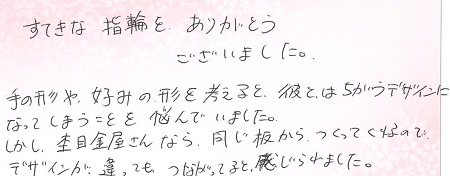 すてきな 指輪を ありがとう
ございました。
手の形や、好みの形を考えると、彼とは ちがうデザインに
なってしまうことを 悩んでいました。
しかし、杢目金屋さんなら、同じ板から、つくってくれるので、
デザインが、違っても、つながってると、感じられました。